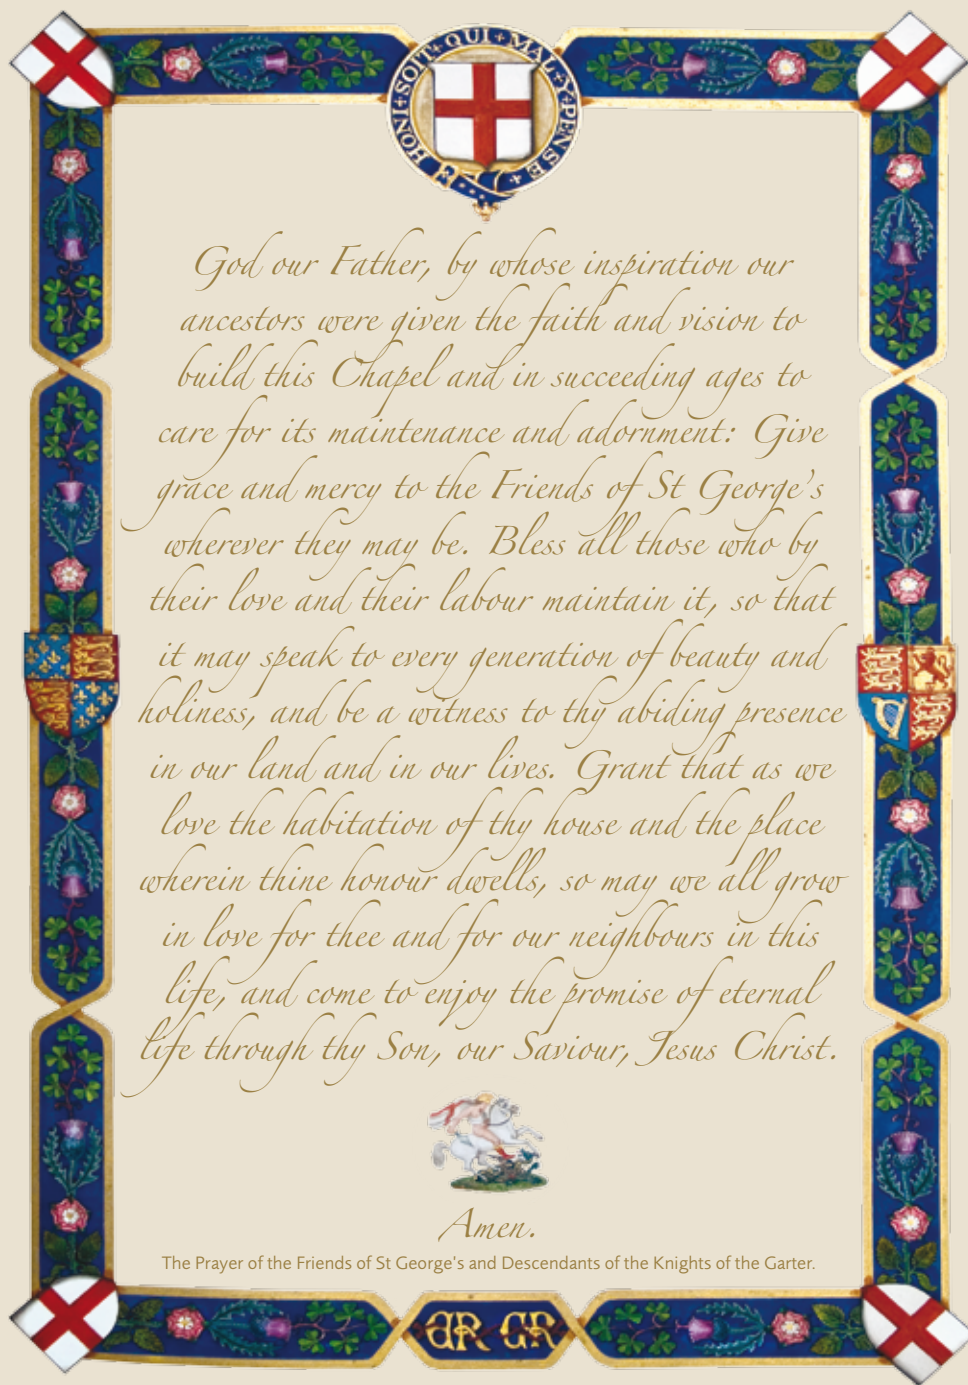 HONI+SOIT+QUI+MAL+Y+PENSE+
God our Father, by whose inspiration our
ancestors were given the faith and vision to
build this Chapel and in succeeding ages to
care for its maintenance and adornment: Give
grace and mercy to the Friends of St George's
wherever they may be. Bless all those who by
their love and their labour maintain it, so that
it may speak to every generation of beauty and
holiness, and be a witness to thy abiding presence
in our land and in our lives. Grant that as we
love the habitation of thy house and the place
wherein thine honour dwells, so may we all grow
in love for thee and for our neighbours in this
life, and come to enjoy the promise of eternal
life through thy Son, our Saviour, Jesus Christ.
Amen.
The Prayer of the Friends of St George's and Descendants of the Knights of the Garter.